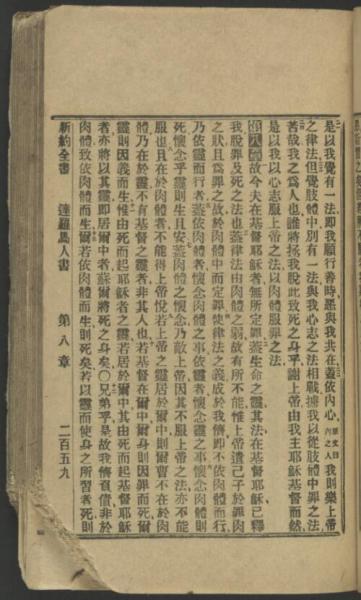 是以我覺有一法即我願行善時惡與我共在蓋依內心原文曰內之人我則樂上帝
之律法但覺肢體中別有一法與我心志之法相戰擄我以從肢體中罪之法
苦哉我之爲人也誰將拯我脫此致死之身乎謝上帝由我主耶穌基督而然
是以我以心志服上帝之法以肉體服罪之法
第八章故今夫在基督耶穌者無所定罪蓋生命之靈其法在基督耶穌已釋
我脫罪及死之法也蓋律法由肉體之弱故有所不能惟上帝遣己子於罪肉
之狀且爲罪之故於肉體中而定罪使律法之義成於我儕即不依肉體而行
乃依靈而行者蓋依肉體者懷念肉體之事依靈者懷念靈之事懷念肉體則
死懷念乎靈則生且安蓋肉體之懷念乃敵上帝因其不服上帝之法亦不能
服也且在於肉體者不能得上帝悅若上帝之靈居於爾中則爾曹不在於肉
體乃在於靈不有基督之靈者非其人也若基督在爾中爾身則因罪而死爾
靈則因義而生惟由死而起耶穌者之靈若居於爾中其由死而起基督耶穌
者亦將以其靈即居爾中者甦爾將死之身矣〇兄弟乎是故我儕負債非於
肉體致依肉體而生爾若依肉體而生則死矣若以靈而使身之所習者死則
新約全書 達羅馬人書 第八章 二百五九